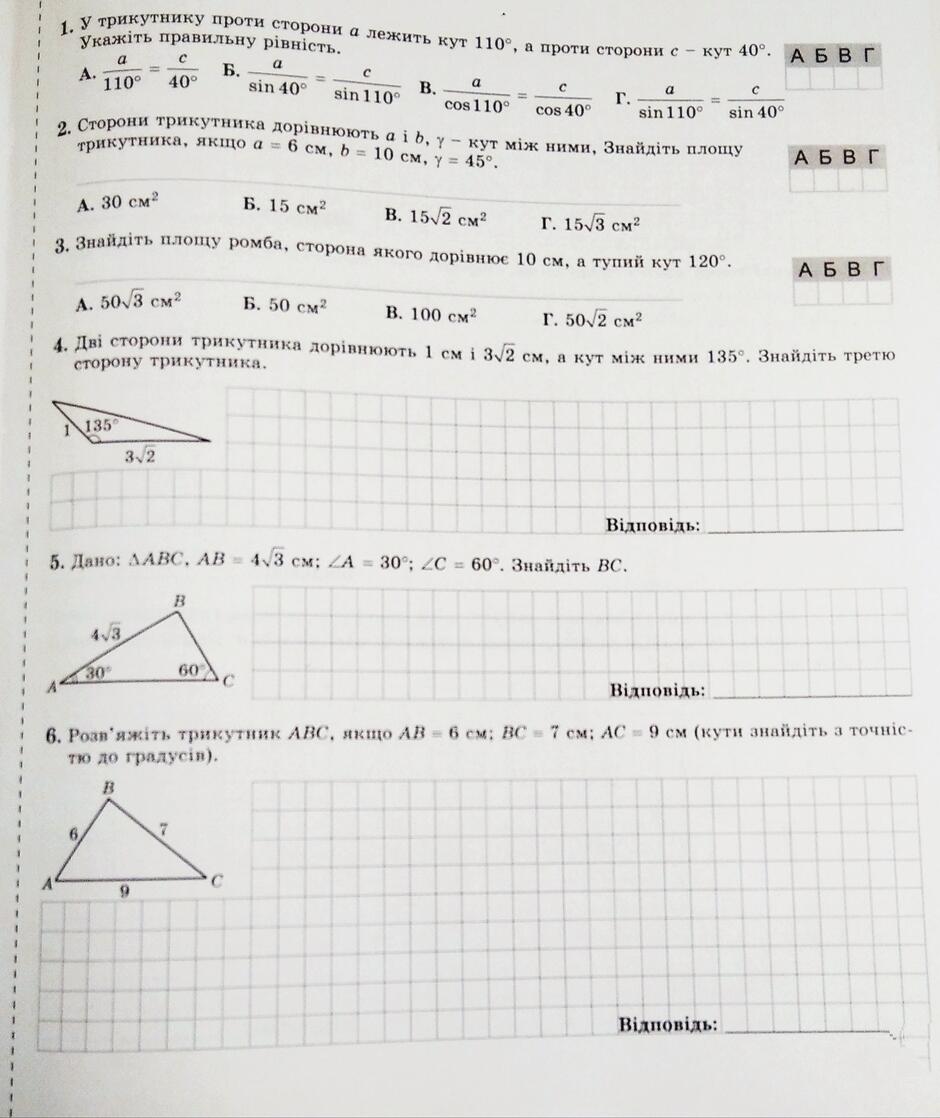 1. У трикутнику проти сторони a лежить кут 110°, а проти сторони c – кут 40°.
Укажіть правильну рівність.
А Б В Г
А. a/110° = c/40° Б. a/sin 40° = c/sin 110° В. a/cos 110° = c/cos 40° Г. a/sin 110° = c/sin 40°
2. Сторони трикутника дорівнюють a і b, γ – кут між ними, Знайдіть площу
трикутника, якщо a = 6 см, b = 10 см, γ = 45°.
А Б В Г
А. 30 см² Б. 15 см² В. 15√2 см² Г. 15√3 см²
3. Знайдіть площу ромба, сторона якого дорівнює 10 см, а тупий кут 120°.
А Б В Г
А. 50√3 см² Б. 50 см² В. 100 см² Г. 50√2 см²
4. Дві сторони трикутника дорівнюють 1 см і 3√2 см, а кут між ними 135°. Знайдіть третю
сторону трикутника.
1 135°
3√2
Відповідь:
5. Дано: △ABC, AB = 4√3 см; ∠A = 30°; ∠C = 60°. Знайдіть BC.
B
4√3
30° 60°
A C
Відповідь:
6. Розв'яжіть трикутник ABC, якщо AB = 6 см; BC = 7 см; AC = 9 см (кути знайдіть з точніс-
тю до градусів).
B
6 7
A C
9
Відповідь: